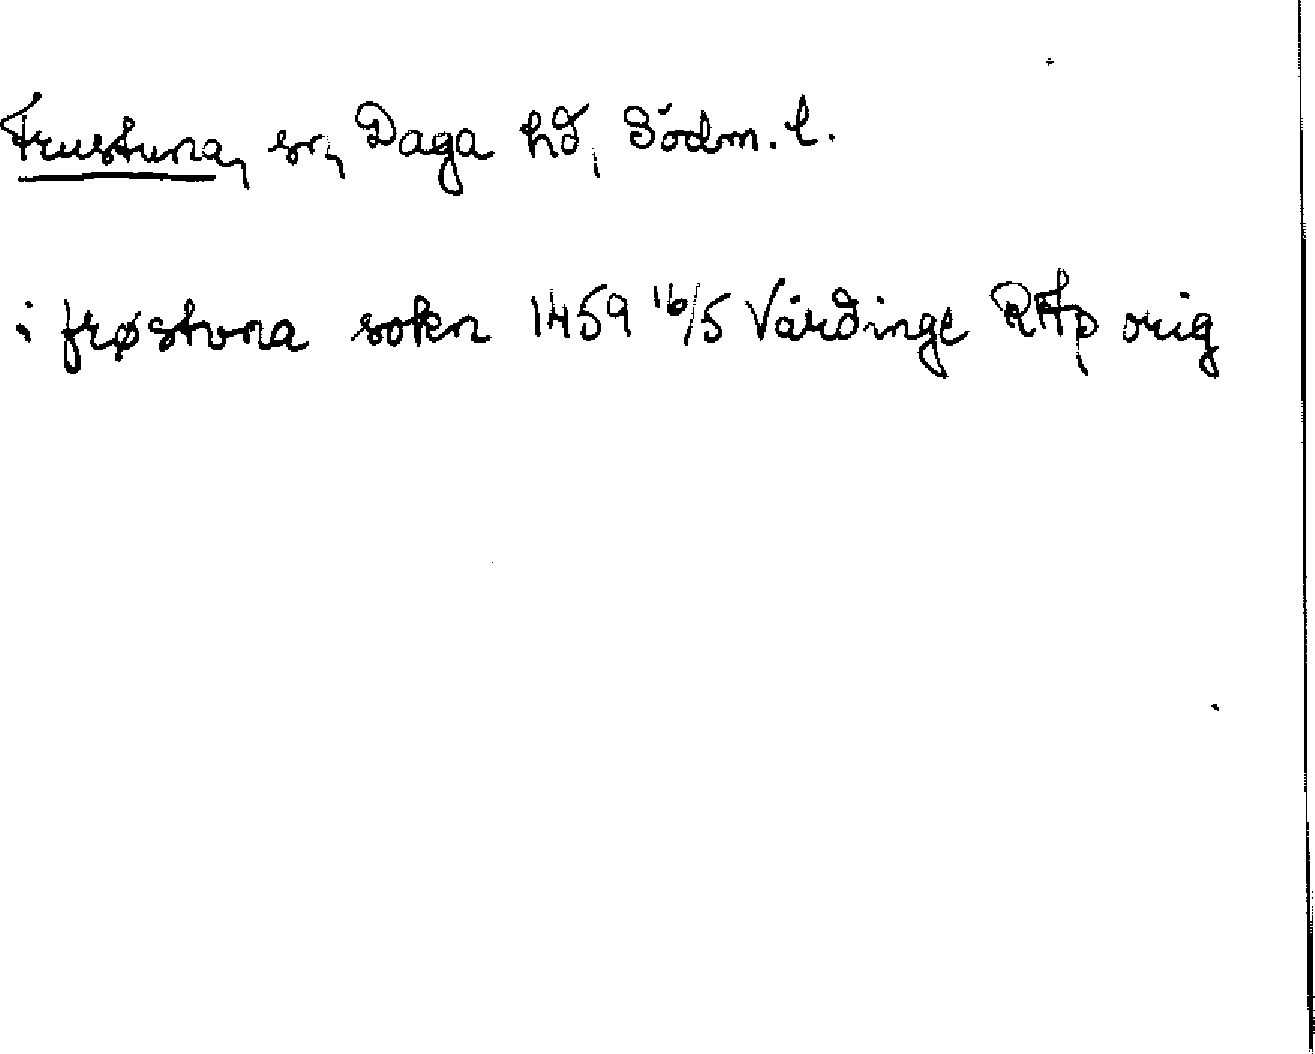 Frustuna, sn, Daga hd, Södm. l.
i frøstvna sokn 1459 16/5 Vårdinge RAp orig